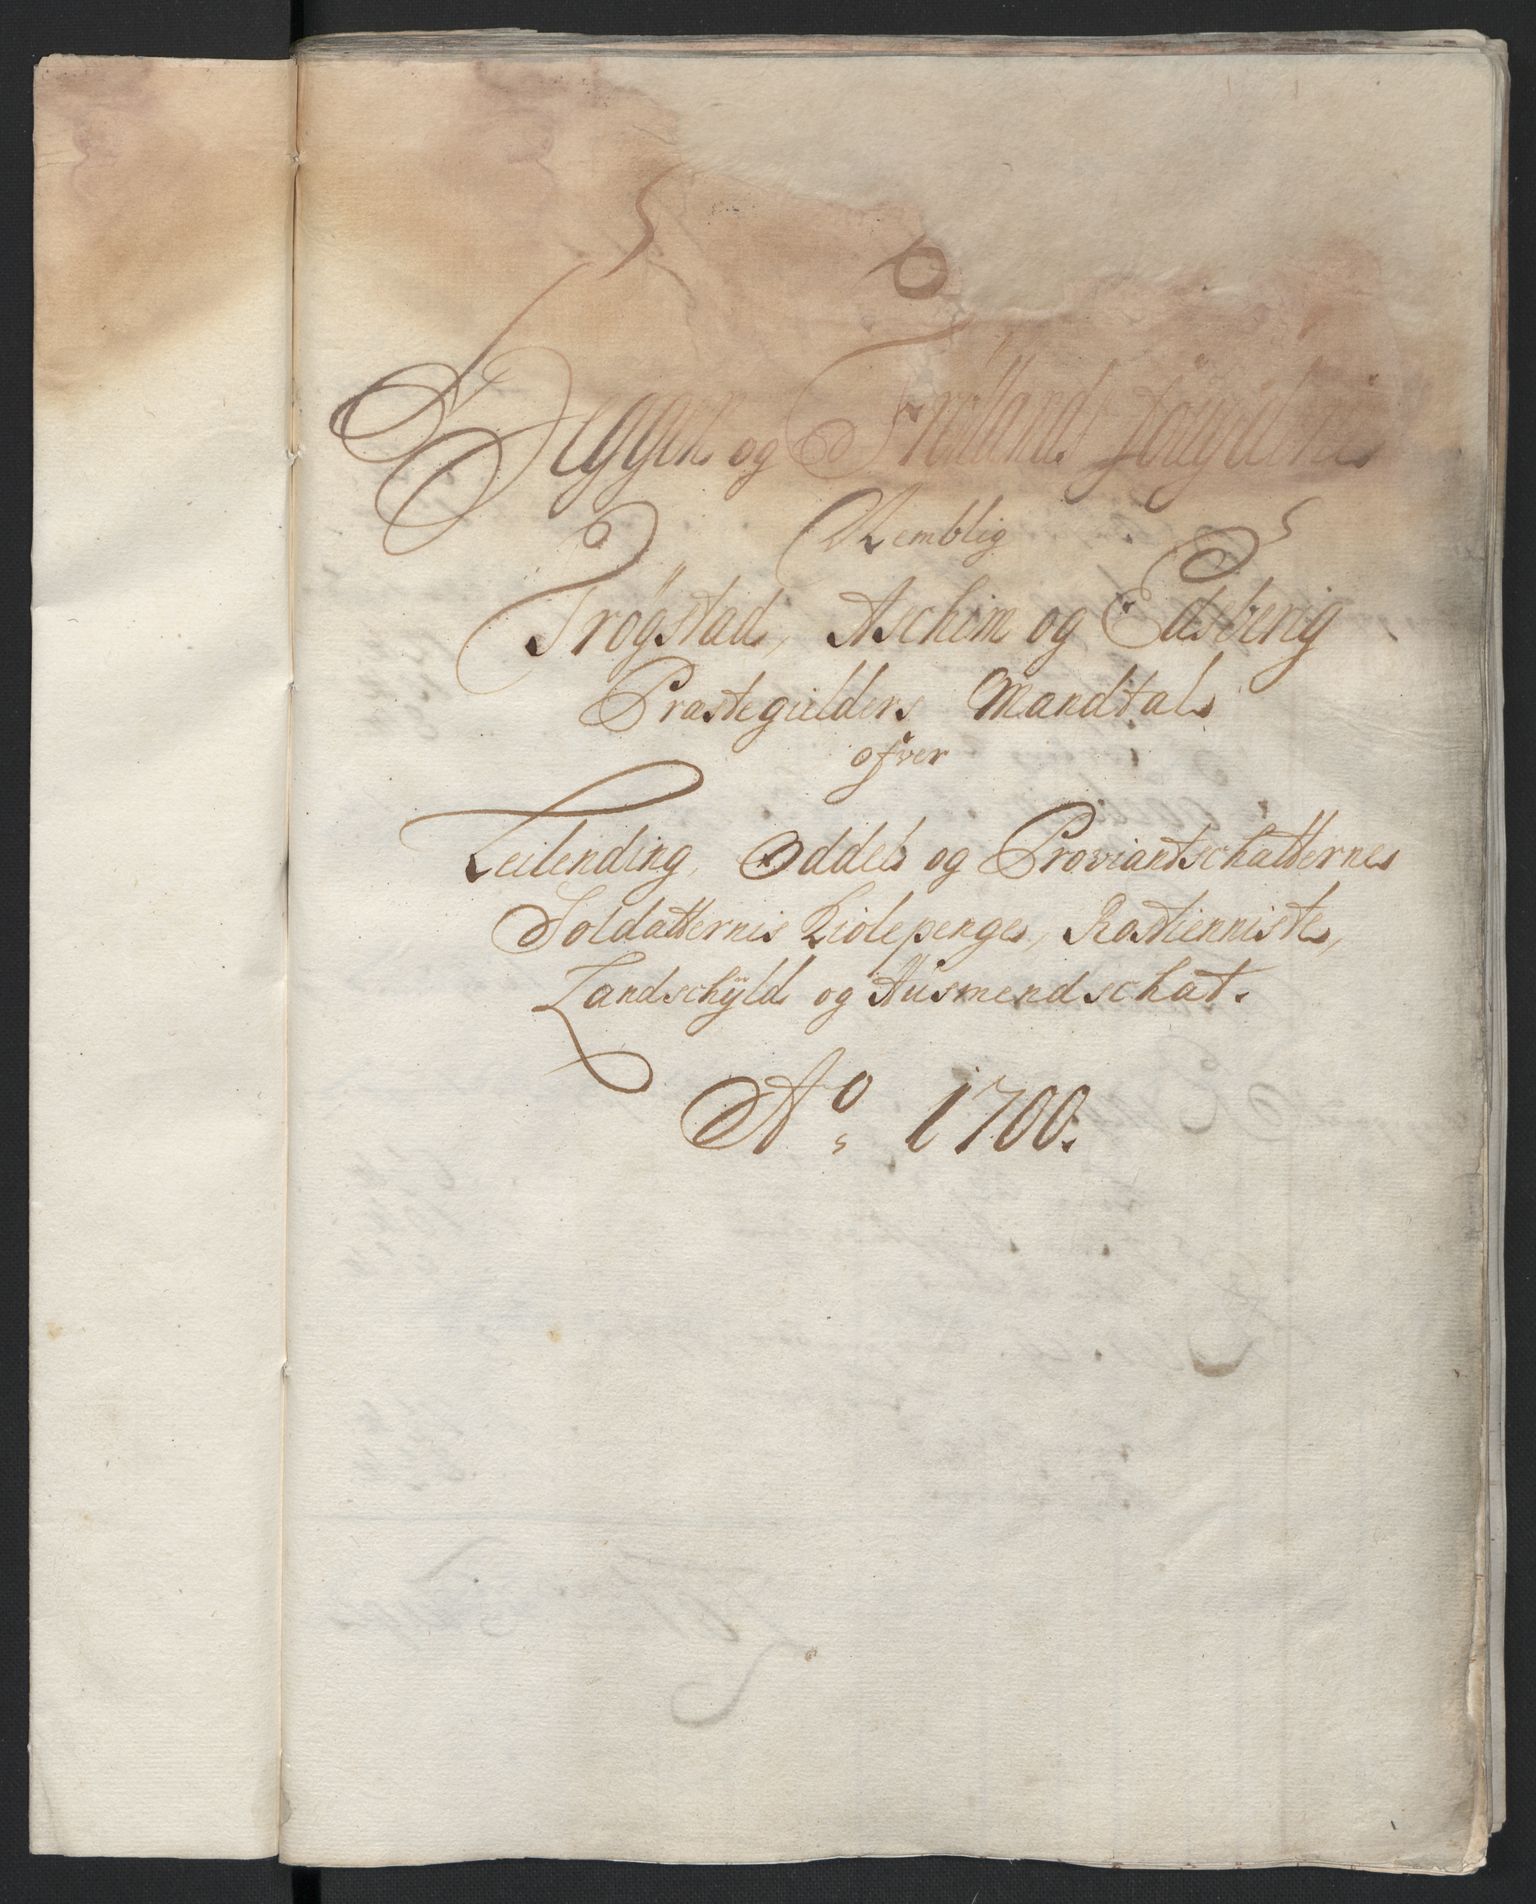 Heggen og Frølland fougderie
Nemblig
Trögstad, Aschim og Edsberig
Prastegielders Mandtal
ofver
Leilending, Oddels og Proviantschatternes
Soldatternis Kiolepenge, Rostienniste,
Landschÿld og Husmendschat.
Aº 1700.